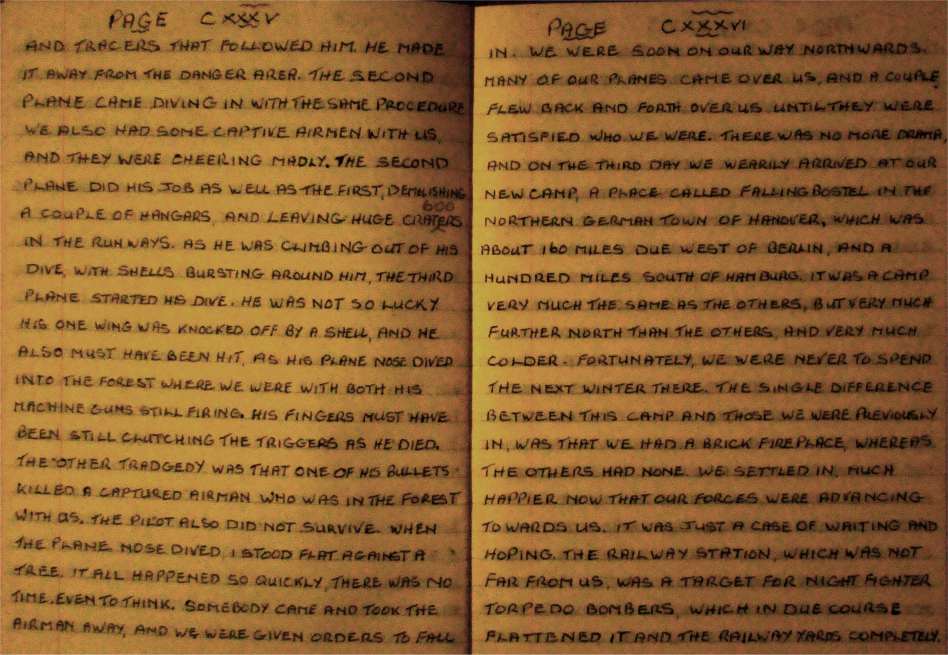 PAGE CXXXV
AND TRACERS THAT FOLLOWED HIM. HE MADE
IT AWAY FROM THE DANGER AREA. THE SECOND
PLANE CAME DIVING IN WITH THE SAME PROCEDURE
WE ALSO HAD SOME CAPTIVE AIRMEN WITH US,
AND THEY WERE CHEERING MADLY. THE SECOND
PLANE DID HIS JOB AS WELL AS THE FIRST, DEMOLISHING
A COUPLE OF HANGARS, AND LEAVING HUGE CRATERS
IN THE RUNWAYS. AS HE WAS CLIMBING OUT OF HIS
DIVE, WITH SHELLS BURSTING AROUND HIM, THE THIRD
PLANE STARTED HIS DIVE. HE WAS NOT SO LUCKY.
HIS ONE WING WAS KNOCKED OFF BY A SHELL, AND HE
ALSO MUST HAVE BEEN HIT, AS HIS PLANE NOSE DIVED
INTO THE FOREST WHERE WE WERE WITH BOTH HIS
MACHINE GUNS STILL FIRING. HIS FINGERS MUST HAVE
BEEN STILL CLUTCHING THE TRIGGERS AS HE DIED.
THE OTHER TRADGEDY WAS THAT ONE OF HIS BULLETS
KILLED A CAPTURED AIRMAN WHO WAS IN THE FOREST
WITH US. THE PILOT ALSO DID NOT SURVIVE. WHEN
THE PLANE NOSE DIVED, I STOOD FLAT AGAINST A
TREE. IT ALL HAPPENED SO QUICKLY, THERE WAS NO
TIME EVEN TO THINK. SOMEBODY CAME AND TOOK THE
AIRMAN AWAY, AND WE WERE GIVEN ORDERS TO FALL
PAGE CXXXVI
IN. WE WERE SOON ON OUR WAY NORTHWARDS.
MANY OF OUR PLANES CAME OVER US, AND A COUPLE
FLEW BACK AND FORTH OVER US UNTIL THEY WERE
SATISFIED WHO WE WERE. THERE WAS NO MORE DRAMA,
AND ON THE THIRD DAY WE WEARILY ARRIVED AT OUR
NEW CAMP, A PLACE CALLED FALLINGBOSTEL IN THE
NORTHERN GERMAN TOWN OF HANOVER, WHICH WAS
ABOUT 160 MILES DUE WEST OF BERLIN, AND A
HUNDRED MILES SOUTH OF HAMBURG. IT WAS A CAMP
VERY MUCH THE SAME AS THE OTHERS, BUT VERY MUCH
FURTHER NORTH THAN THE OTHERS, AND VERY MUCH
COLDER. FORTUNATELY, WE WERE NEVER TO SPEND
THE NEXT WINTER THERE. THE SINGLE DIFFERENCE
BETWEEN THIS CAMP AND THOSE WE WERE PREVIOUSLY
IN, WAS THAT WE HAD A BRICK FIREPLACE, WHEREAS
THE OTHERS HAD NONE. WE SETTLED IN, MUCH
HAPPIER NOW THAT OUR FORCES WERE ADVANCING
TOWARDS US. IT WAS JUST A CASE OF WAITING AND
HOPING. THE RAILWAY STATION, WHICH WAS NOT
FAR FROM US, WAS A TARGET FOR NIGHT FIGHTER
TORPEDO BOMBERS, WHICH IN DUE COURSE
FLATTENED IT AND THE RAILWAY YARDS COMPLETELY.